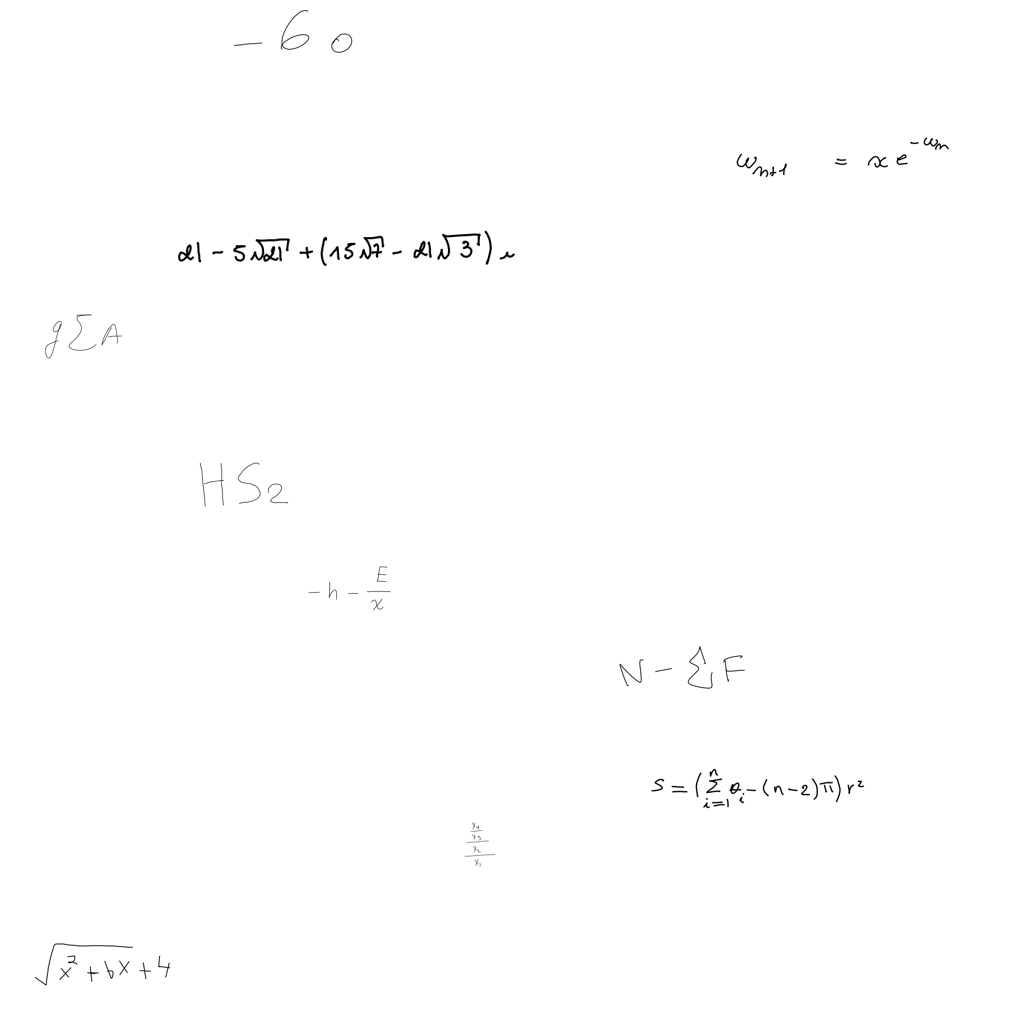 -60
w_{n+1} = x e^{-w_n}
21 - 5\sqrt{21} + (15\sqrt{7} - 21\sqrt{3}) i
g \sum A
HS_2
-h - \frac{E}{x}
N - \sum F
S = (\sum_{i=1}^{n} θ_i - (n-2)π) r^2
\frac{\frac{\frac{y_4}{y_3}}{y_2}}{y_1}
\sqrt{x^2 + bx} + 4